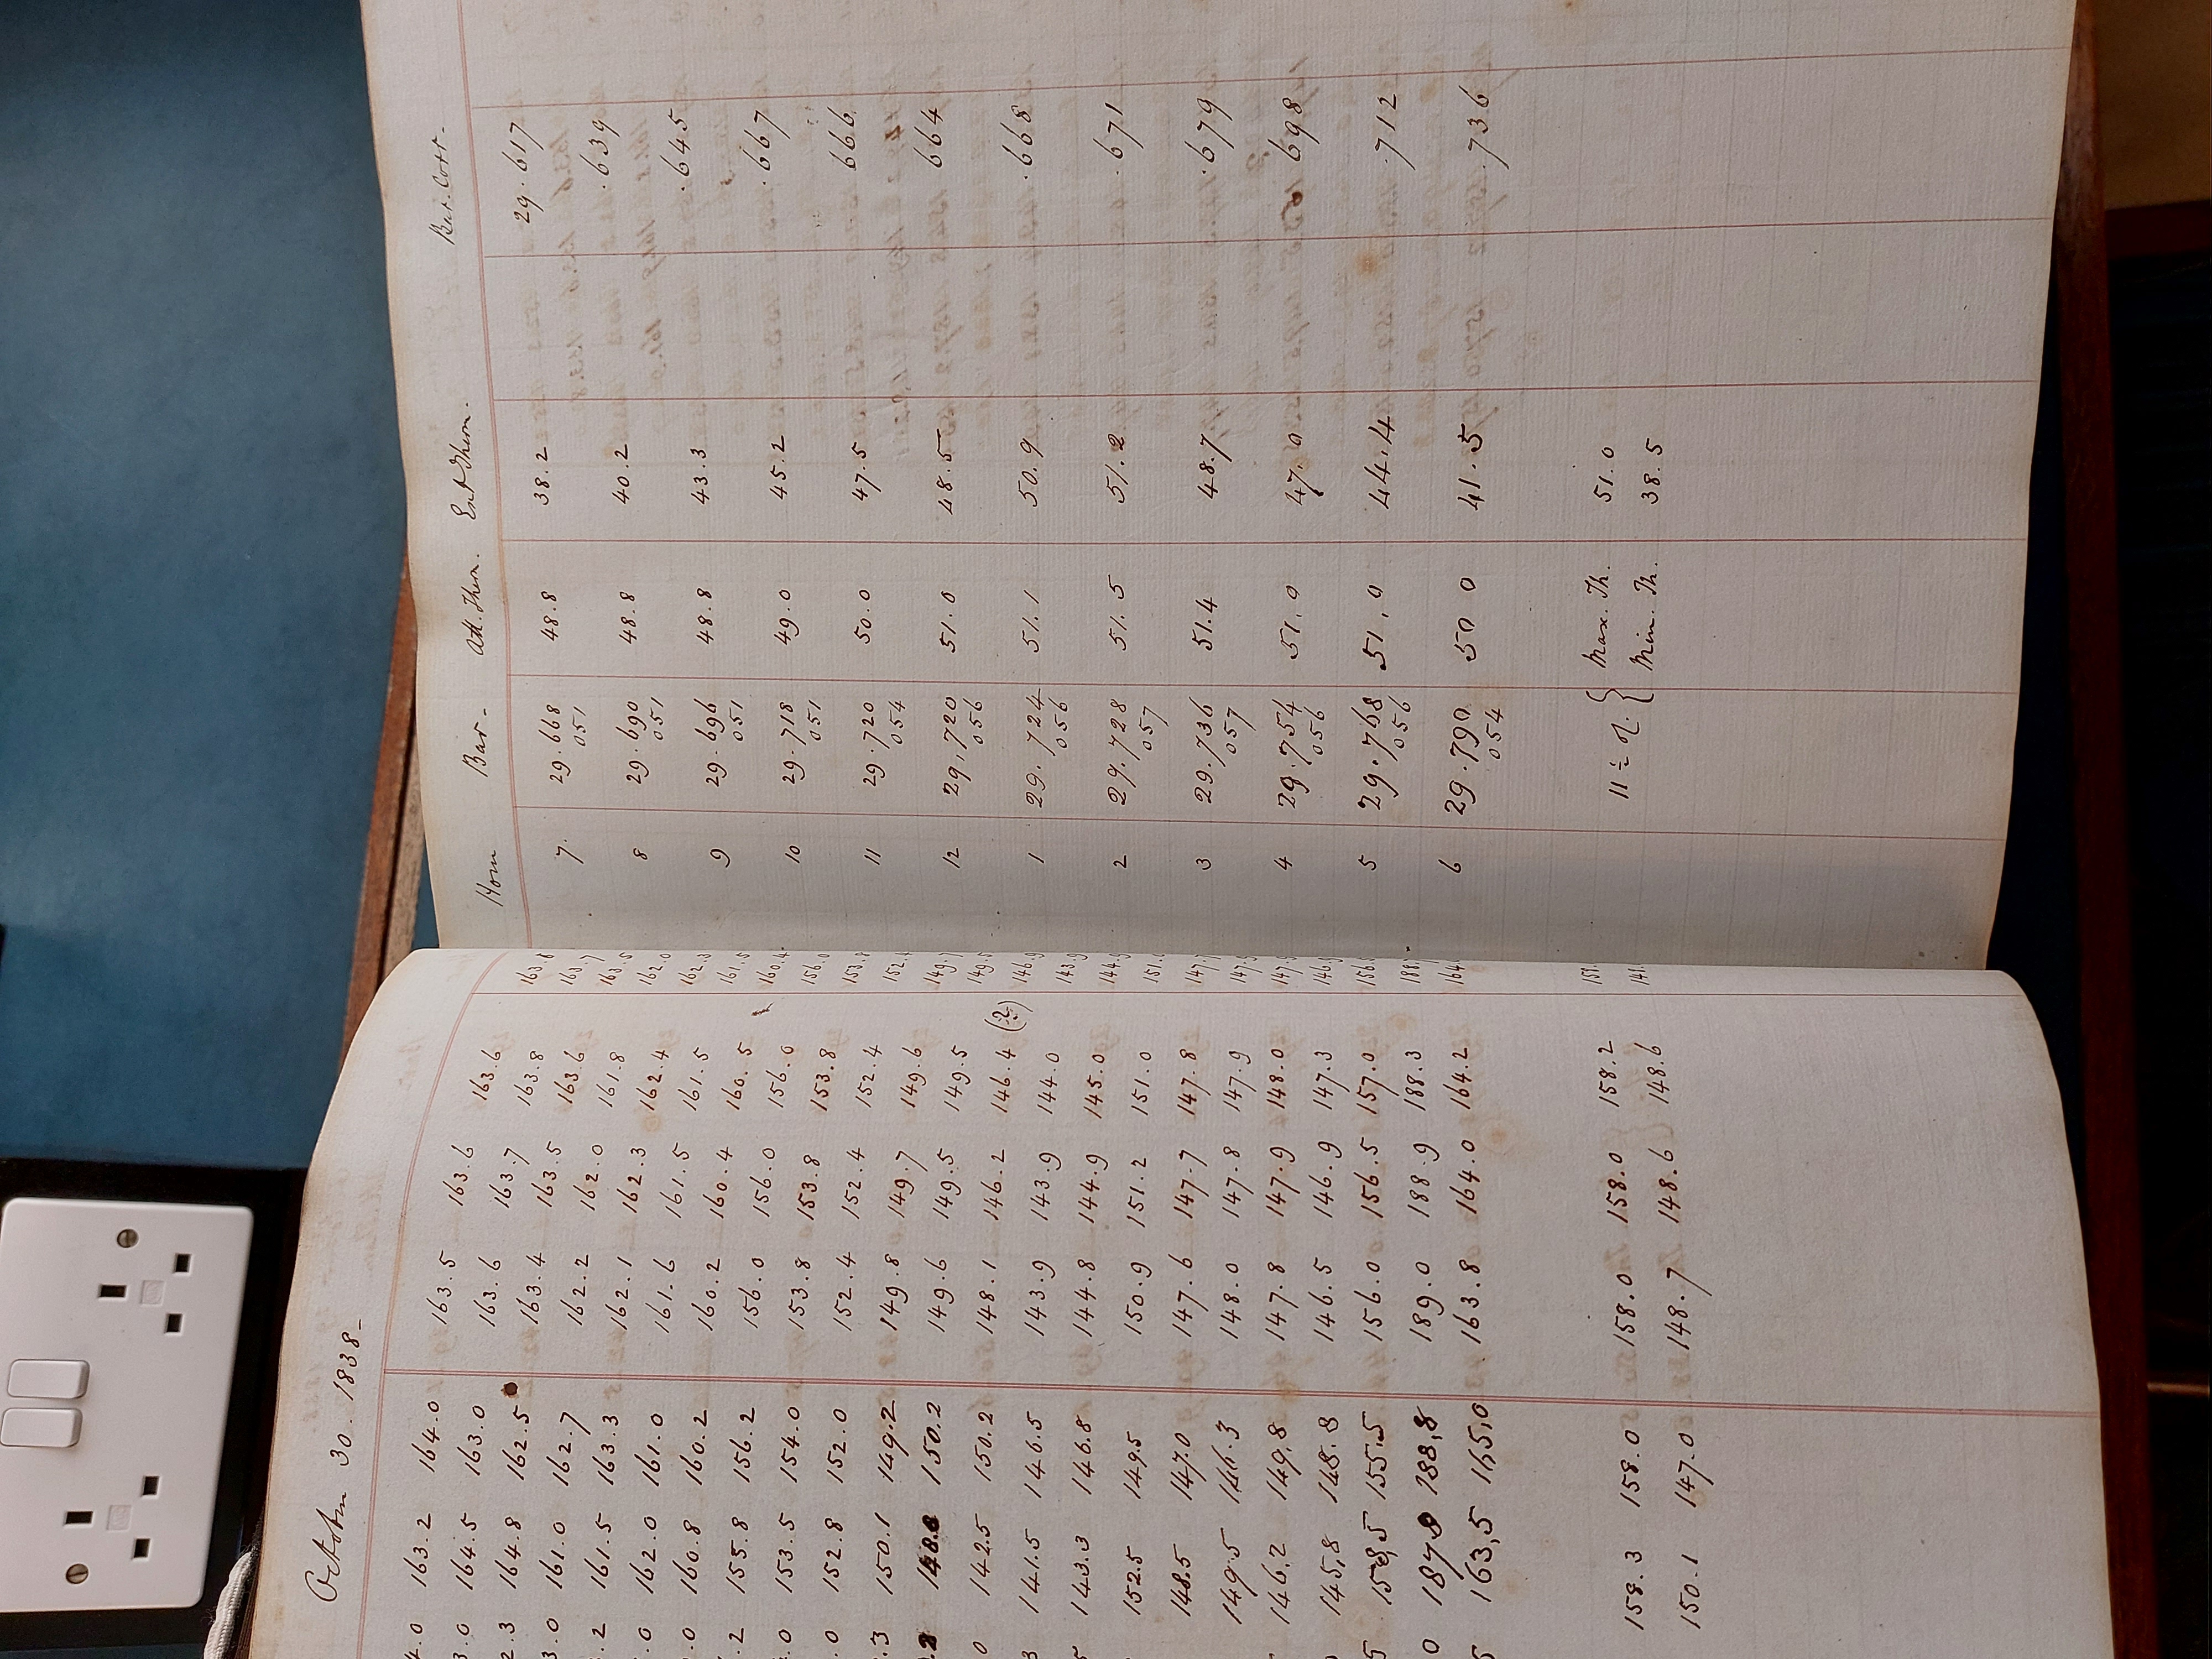 October 30. 1838-
4.0 163.2 164.0 163.5 163.6 163.6
3.0 164.5 163.0 163.6 163.7 163.8 163.8
2.3 164.8 162.5 163.4 163.5 163.6 163.7
3.0 161.0 162.7 162.2 162.0 161.8 163.5
.2 161.5 163.3 162.1 162.3 162.4 162.0
.0 162.0 161.0 161.6 161.5 161.5 162.3
.0 160.8 160.2 160.2 160.4 160.5 161.5
.2 155.8 156.2 156.0 156.0 156.0 160.4
.0 153.5 154.0 153.8 153.8 153.8 156.0
.0 152.8 152.0 152.4 152.4 152.4 153.8
.3 150.1 149.2 149.8 149.7 149.6 152.4
.2 148.8 150.2 149.6 149.5 149.5 149.7
0 142.5 150.2 148.1 146.2 146.4 (2) 149.5
3 141.5 146.5 143.9 143.9 144.0 146.9
5 143.3 146.8 144.8 144.9 145.0 143.9
152.5 149.5 150.9 151.2 151.0 144.9
148.5 147.0 147.6 147.7 147.8 151.0
149.5 146.3 148.0 147.8 147.9 147.7
146.2 149,8 147.8 147.9 148.0 147.9
145,8 148.8 146.5 146.9 147.3 147.9
5 158,5 155.5 156.0 156.5 157.0 146.9
0 187.8 188,8 189.0 188.9 188.3 156.5
5 163,5 165,0 163.8 164.0 164.2 188.
164
158.3 158.0 158.0 158.0 158.2 158.
150.1 147.0 148.7 148.6 148.6 148.
Hour Bar- Att. Therm. Ext Therm. Bar. Corr.
7. 29.668 48.8 38.2 29.617
051
8 29.690 48.8 40.2 .639
051
9 29.696 48.8 43.3 .645
051
10 29.718 49.0 45.2 .667
051
11 29.720 50.0 47.5 666
054
12 29,720 51.0 48.5 664
056
1 29.724 51.1 50.9 .668
056
2 29.728 51.5 51.2 .671
057
3 29.736 51.4 48.7 .679
057
4 29.754 51.0 47.0 698
056
5 29.768 51,0 44.4 .712
056
6 29.790 50 0 41.5 .736
054
11 ½ { Max. Th. 51.0
Min. Th. 38.5